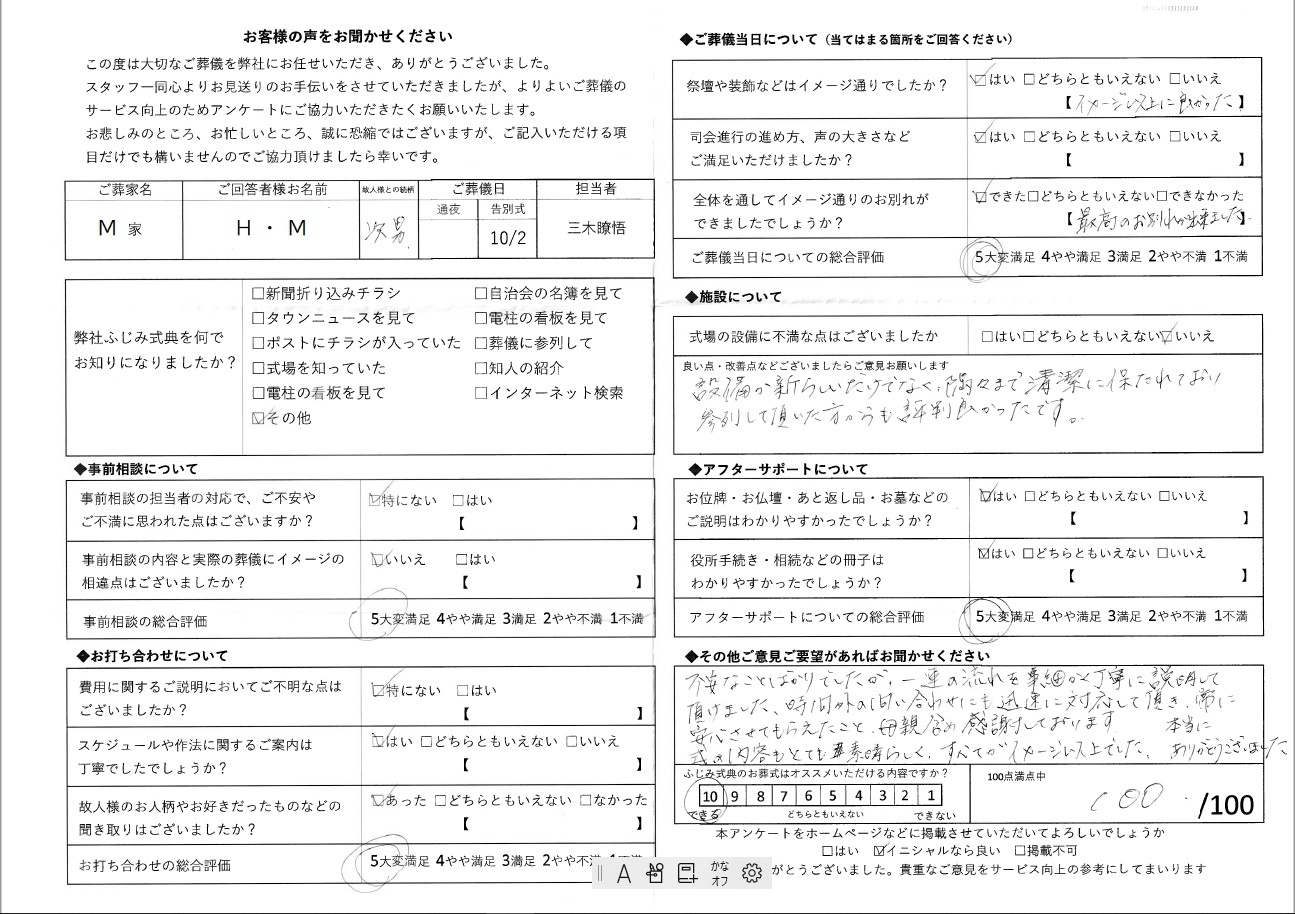 お客様の声をお聞かせください
この度は大切なご葬儀を弊社にお任せいただき、ありがとうございました。
スタッフ一同心よりお見送りのお手伝いをさせていただきましたが、よりよいご葬儀の
サービス向上のためアンケートにご協力いただきたくお願いいたします。
お悲しみのところ、お忙しいところ、誠に恐縮ではございますが、ご記入いただける項
目だけでも構いませんのでご協力頂けましたら幸いです。
ご葬家名 ご回答者様お名前 故人様との続柄 ご葬儀日 担当者
通夜 告別式
M 家 H・M 次男 10/2 三木瞭悟
弊社ふじみ式典を何で
お知りになりましたか？
□新聞折り込みチラシ □自治会の名簿を見て
□タウンニュースを見て □電柱の看板を見て
□ポストにチラシが入っていた □葬儀に参列して
□式場を知っていた □知人の紹介
□電柱の看板を見て □インターネット検索
☑その他
◆事前相談について
事前相談の担当者の対応で、ご不安や
ご不満に思われた点はございますか？
☑特にない □はい
【 】
事前相談の内容と実際の葬儀にイメージの
相違点はございましたか？
☑いいえ □はい
【 】
事前相談の総合評価 5大変満足 4やや満足 3満足 2やや不満 1不満
◆お打ち合わせについて
費用に関するご説明においてご不明な点は
ございましたか？
☑特にない □はい
【 】
スケジュールや作法に関するご案内は
丁寧でしたでしょうか？
☑はい □どちらともいえない □いいえ
【 】
故人様のお人柄やお好きだったものなどの
聞き取りはございましたか？
☑あった □どちらともいえない □なかった
【 】
お打ち合わせの総合評価 5大変満足 4やや満足 3満足 2やや不満 1不満
◆ご葬儀当日について（当てはまる箇所をご回答ください）
祭壇や装飾などはイメージ通りでしたか？
☑はい □どちらともいえない □いいえ
【イメージ以上に良かった】
司会進行の進め方、声の大きさなど
ご満足いただけましたか？
☑はい □どちらともいえない □いいえ
【 】
全体を通してイメージ通りのお別れが
できましたでしょうか？
☑できた□どちらともいえない□できなかった
【最高のお別れが出来ました】
ご葬儀当日についての総合評価 5大変満足 4やや満足 3満足 2やや不満 1不満
◆施設について
式場の設備に不満な点はございましたか □はい□どちらともいえない☑いいえ
良い点・改善点などございましたらご意見お願いします
設備が新らしいだけでなく、隅々まで清潔に保たれており
参列して頂いた方からも評判良かったです。
◆アフターサポートについて
お位牌・お仏壇・あと返し品・お墓などの
ご説明はわかりやすかったでしょうか？
☑はい □どちらともいえない □いいえ
【 】
役所手続き・相続などの冊子は
わかりやすかったでしょうか？
☑はい □どちらともいえない □いいえ
【 】
アフターサポートについての総合評価 5大変満足 4やや満足 3満足 2やや不満 1不満
◆その他ご意見ご要望があればお聞かせください
不安なことばかりでしたが、一連の流れを事細かく丁寧に説明して
頂けました、時間外の問い合わせにも迅速に対応して頂き、常に
安心させてもらえたこと、母親含め感謝しております
式の内容もとても素晴らしく、すべてがイメージ以上でした、本当に
ありがとうございました
ふじみ式典のお葬式はオススメいただける内容ですか？
10 9 8 7 6 5 4 3 2 1
できる どちらともいえない できない
100点満点中
100 /100
本アンケートをホームページなどに掲載させていただいてよろしいでしょうか
□はい ☑イニシャルなら良い □掲載不可
がとうございました。貴重なご意見をサービス向上の参考にしてまいります
A かな
オフ